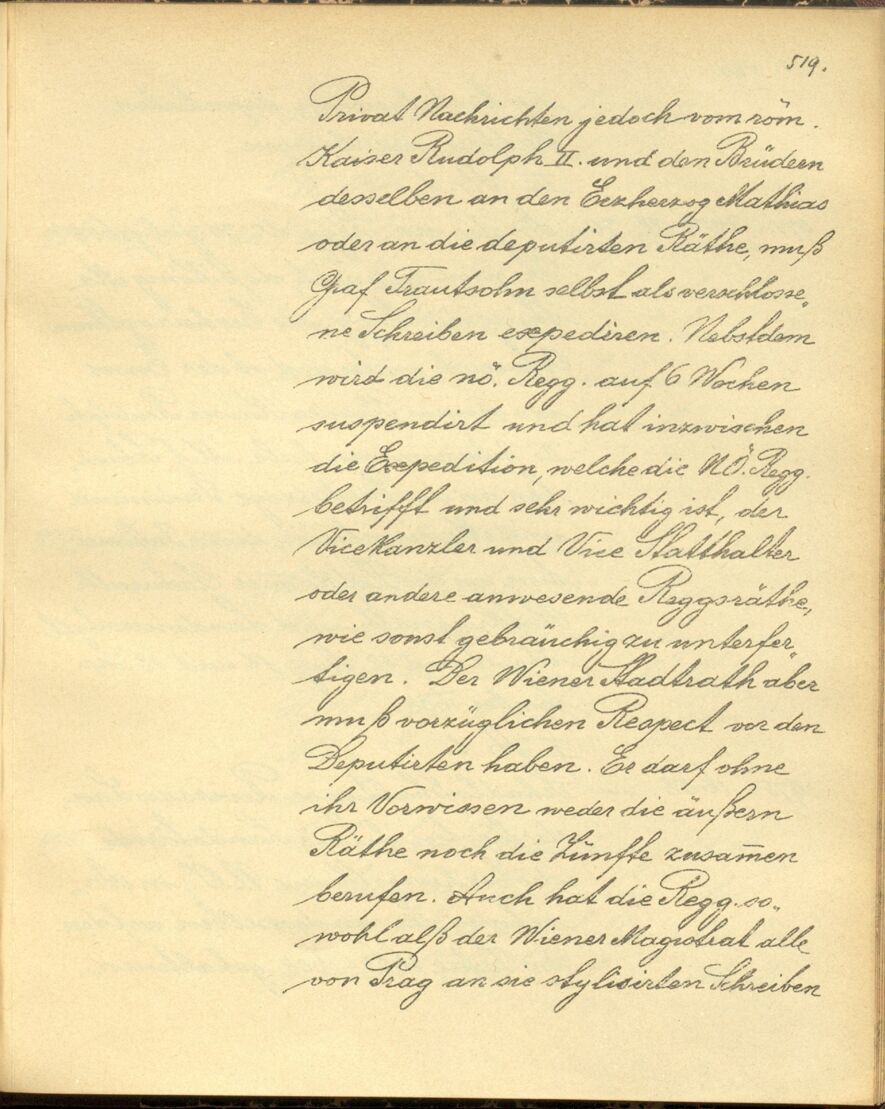 519.
Privat Nachrichten jedoch vom röm.
Kaiser Rudolph II. und den Brüdern
desselben an den Erzherzog Mathias
oder an die deputirten Räthe, muß
Graf Trautsohn selbst als verschlosse„
ne Schreiben expediren. Nebstdem
wird die nö. Regg. auf 6 Wochen
suspendirt und hat inzwischen
die Expedition, welche die NÖ. Regg.
betrifft und sehr wichtig ist, der
Vicekanzler und Vice Statthalter
oder andere anwesende Reggsräthe,
wie sonst gebräuchig zu unterfer„
tigen. Der Wiener Stadtrath aber
muß vorzüglichen Respect vor den
Deputirten haben. Er darf ohne
ihr Vorwissen weder die äußern
Räthe noch die Zünfte zusam̅en
berufen. Auch hat die Regg. so„
wohl alß der Wiener Magistrat alle
von Prag an sie stylisirten Schreiben